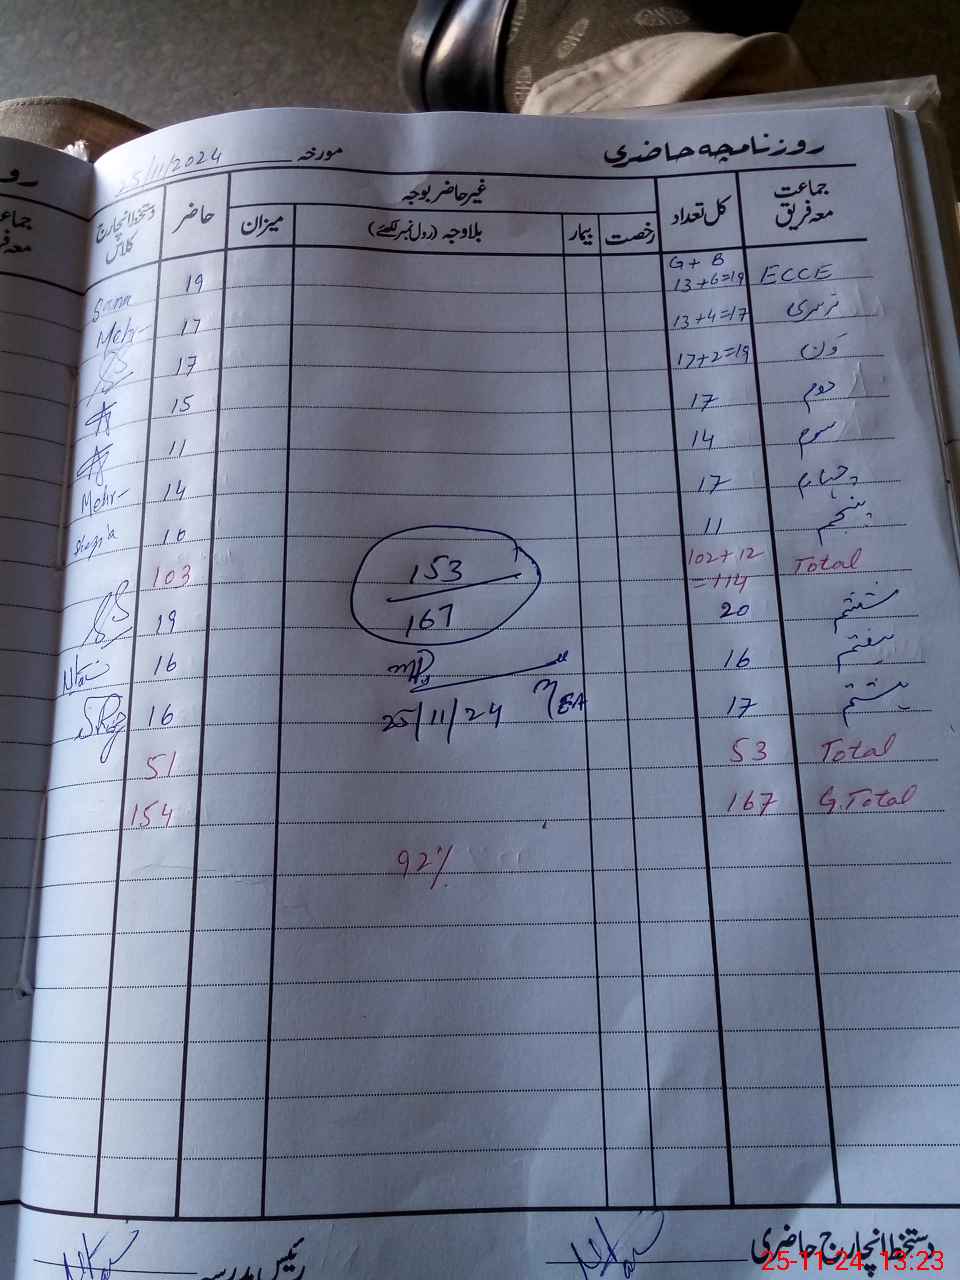 روزنامچہ حاضری مورخہ 25/11/2024
جماعت معہ فریق کل تعداد غیر حاضر بوجہ حاضر دستخط انچارج کلاس
رخصت بیمار بلاوجہ (رول نمبر لکھئے) میزان
G + B
ECCE 13+6=19 19
نرسری 13+4=17 17
ون 17+2=19 17
دوم 17 15
سوم 14 11
چہارم 17 14 Mehr
پنجم 11 10
Total 102+12 =114 103
153
167
ششم 20 19
ہفتم 16 16
ہشتم 17 16
25/11/24 MEA
Total 53 51
G.Total 167 154
92%
دستخط انچارج حاضری رئیس مدرسہ
25-11-24, 13:23